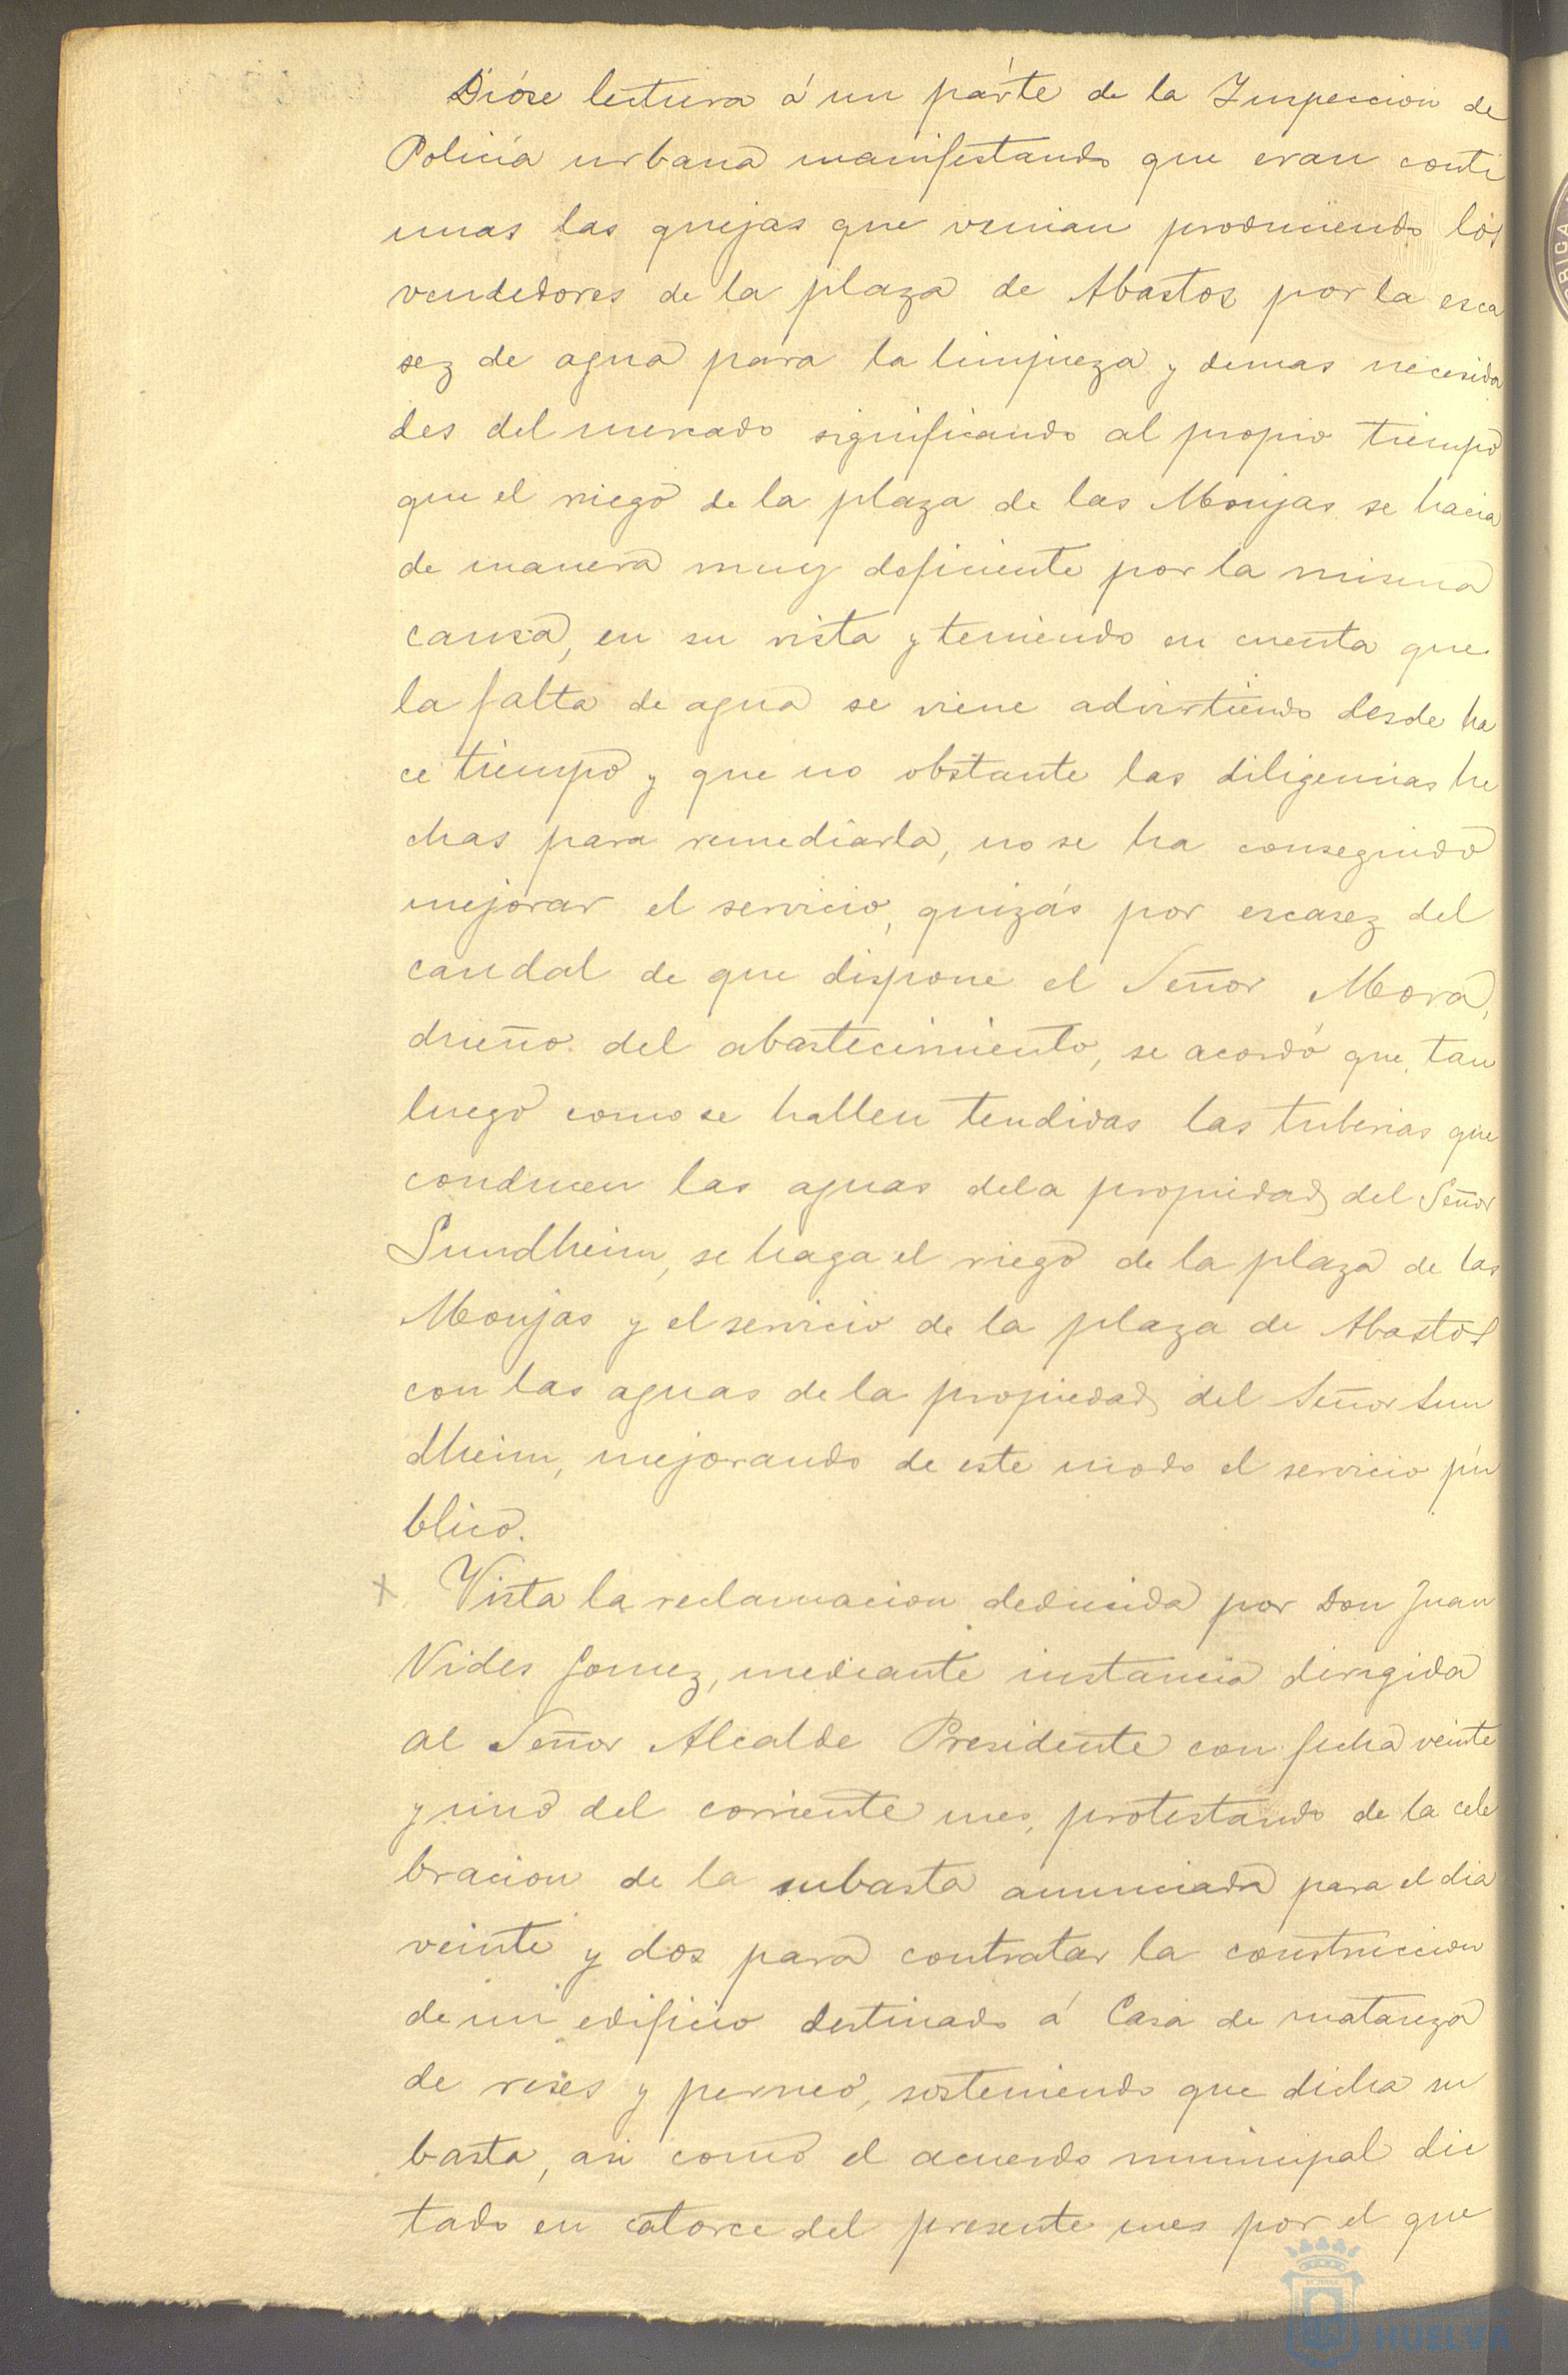 Dióse lectura á un parte de la Inspeccion de
Policía urbana manifestando que eran conti
nuas las quejas que venian produciendo los
vendedores de la plaza de Abastos por la esca
sez de agua para la limpieza y demas necesida
des del mercado significando al propio tiempo
que el riego de la plaza de las Monjas se hacia
de manera muy deficiente por la misma
causa, en su vista y teniendo en cuenta que
la falta de agua se viene advirtiendo desde ha
ce tiempo y que no obstante las diligencias he
chas para remediarla, no se ha conseguido
mejorar el servicio, quizás por escasez del
caudal de que dispone el Señor Mora,
dueño del abastecimiento, se acordó que, tan
luego como se hallen tendidas las tuberias que
conducen las aguas dela propiedad del Señor
Sundheim, se haga el riego de la plaza de las
Monjas y el servicio de la plaza de Abastos
con las aguas de la propiedad del Señor Sun
dheim, mejorando de este modo el servicio pú
blico.
x Vista la reclamacion deducida por Don Juan
Vides Gomez, mediante instancia dirigida
al Señor Alcalde Presidente con fecha veinte
y uno del corriente mes, protestando de la cele
bracion de la subasta anunciada para el dia
veinte y dos para contratar la construccion
de un edificio destinado á Casa de matanza
de reses y perneo, sosteniendo que dicha su
basta, asi como el acuerdo municipal dic
tado en catorce del presente mes por el que
HUELVA